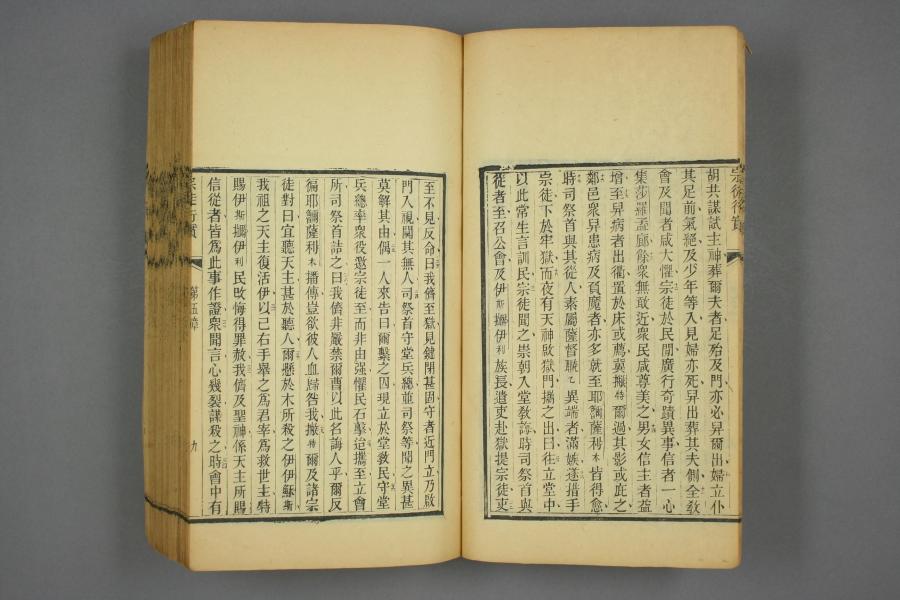 宗徒行實
胡共謀試主神葬爾夫者足殆及門亦必舁爾出婦立仆
其足前氣絕及少年等入見婦亦死舁出葬其夫側全敎
會及聞者咸大懼宗徒於民間廣行奇蹟異事信者一心
集莎羅孟廊餘衆無敢近衆民咸尊美之男女信主者益
增至舁病者出衢置於床或薦冀撇特爾過其影或庇之
鄰邑衆舁患病及負魔者亦多就至耶薩利木皆得愈
時司祭首與其從人素屬薩督乙異端者滿嫉遂措手
宗徒下於牢獄而夜有天神啟獄門攜之出曰往立堂中
以此常生言訓民宗徒聞之崇朝入堂敎誨時司祭首與
從者至召公會及伊斯攦伊利族長遣吏赴獄提宗徒吏
至不見反命曰我儕至獄見鍵閉甚固守者近門立乃啟
門入視闃其無人司祭首守堂兵總並司祭等聞之異甚
莫解其由偶一人來告曰爾繫之囚現立於堂敎民守堂
兵總率衆役邀宗徒至而非由强懼民石擊迨攜至立會
所司祭首詰之曰我儕非嚴禁爾曹以此名誨人乎爾反
徧耶薩利木播傳豈欲彼人血歸咎我撇特爾及諸宗
徒對曰宜聽天主甚於聽人爾懸於木所殺之伊伊穌斯
我祖之天主復活伊以己右手舉之爲君宰爲救世主特
賜伊斯攦伊利民改悔得罪赦我儕及聖神係天主所賜
信從者皆爲此事作證衆聞言心幾裂謀殺之時會中有
宗徒行實 第五章 九